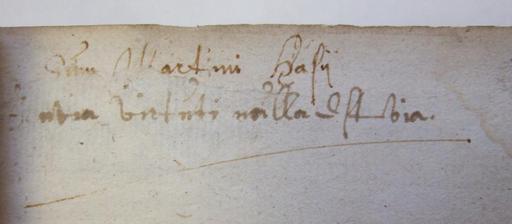 Sum Martini Hasij
invia virtuti nulla est via.